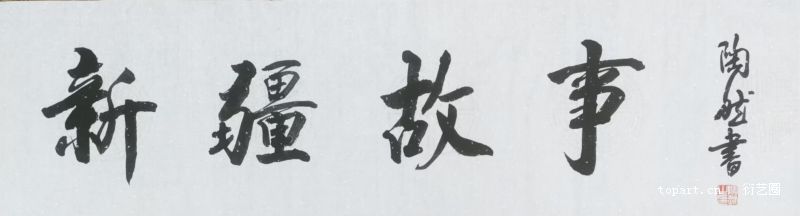 新疆故事
陶然书
topart.cn 衍艺圈